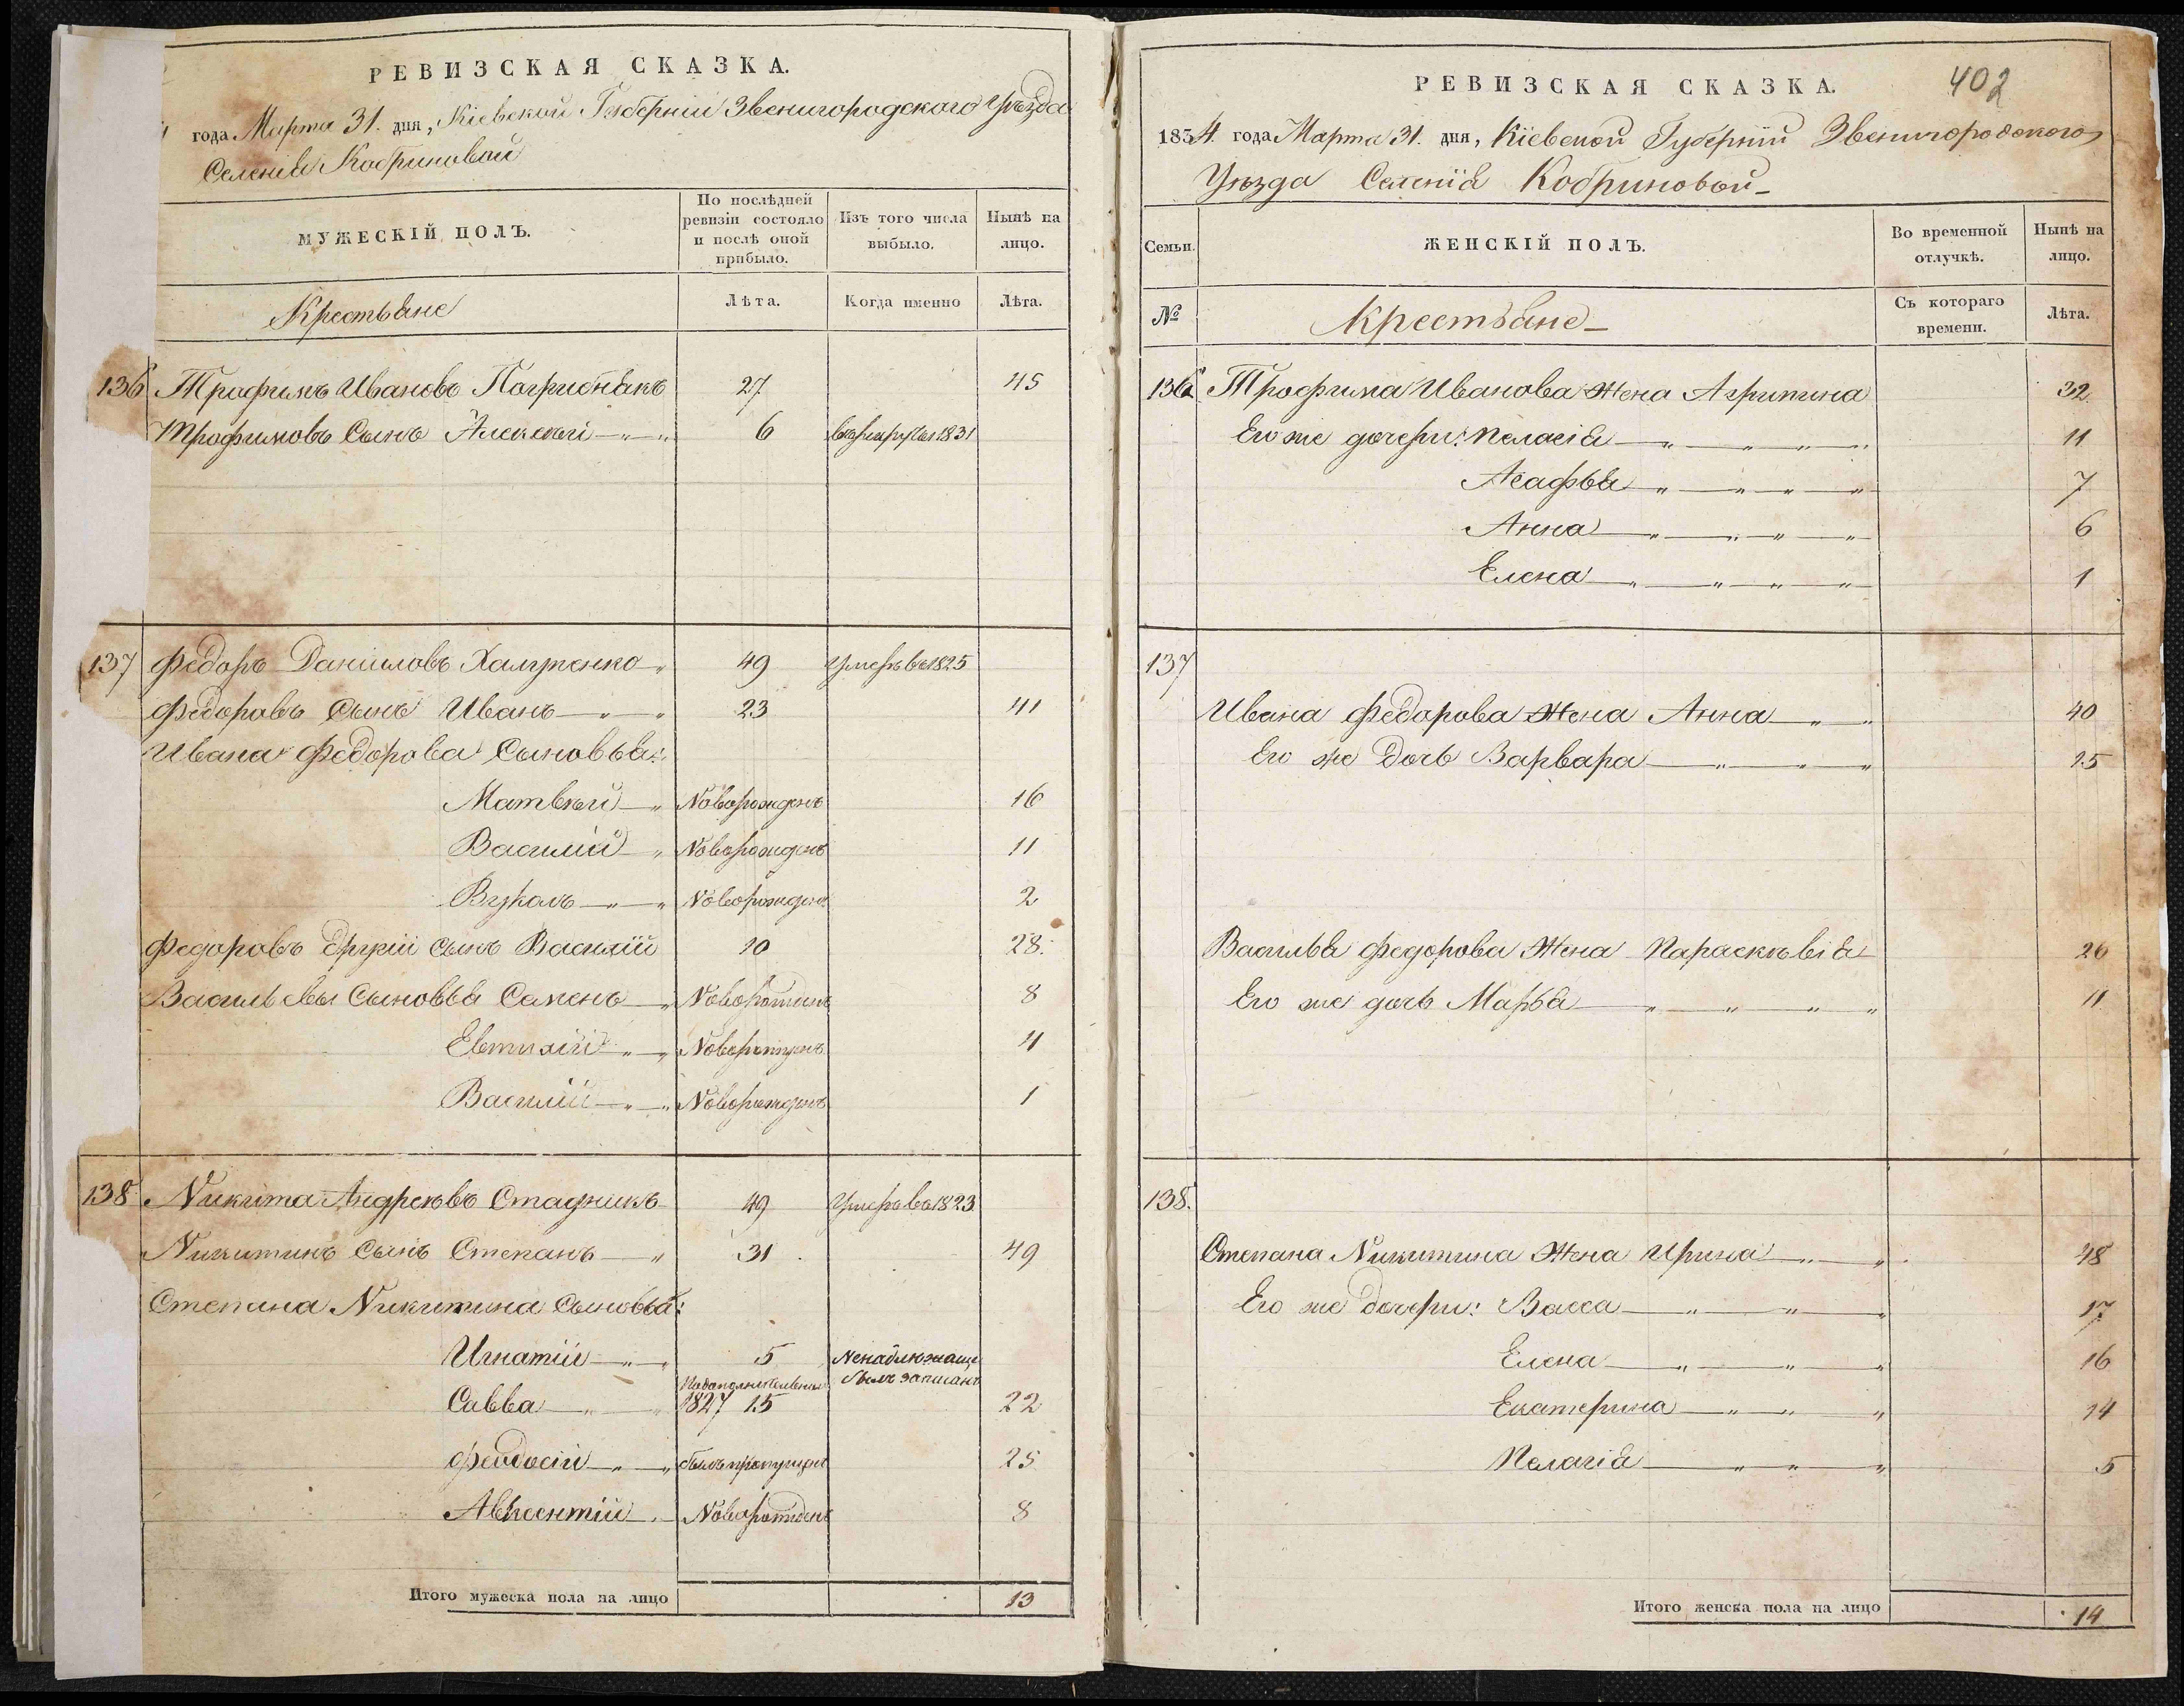 РЕВИЗСКАЯ СКАЗКА.
года Марта 31. дня, Кіевской Губерніи Звенигородского Уѣзда
Селенія Кобриновой
МУЖЕСКІЙ ПОЛЪ.
По послѣдней ревизіи состояло и послѣ оной прибыло.
Изъ того числа выбыло.
Нынѣ на лицо.
Крестьяне
Лѣта.
Когда именно
Лѣта.
136 Трофимъ Ивановъ 27 45
Трофимовъ Сынъ Алексѣй 6 1831
137 Федоръ Даниловъ 49 Умеръ въ 1825
Федоровъ Сынъ Иванъ 23 41
Ивана Федорова Сыновья:
Матвѣй Новорожденъ 16
Василій Новорожденъ 11
Вуколъ Новорожден 2
Федоровъ другій сынъ Василій 10 28.
Васильевы Сыновья Семенъ Новорожденъ 8
Евтихій Новорожденъ 4
Василій Новорожденъ 1
138 Никита Андреевъ Стадникъ 49 Умеръ въ 1823
Никитинъ Сынъ Степанъ 31 49
Степана Никитина Сыновья:
Игнатій 5 былъ записанъ
Савва 1827 15 22
Феодосій былъ пропущен 25
Авксентій Новорожденъ 8
Итого мужеска пола на лицо 13
402
РЕВИЗСКАЯ СКАЗКА.
1834. года Марта 31. дня, Кіевской Губерніи Звенигородского
Уѣзда Селенія Кобриновой
Семьи.
ЖЕНСКІЙ ПОЛЪ.
Во временной отлучкѣ.
Нынѣ на лицо.
№
Крестьяне
Съ котораго времени.
Лѣта.
136 Трофима Иванова Жена Агрипина 32
Его же дочери: Пелагія 11
Агафья 7
Анна 6
Елена 1
137
Ивана Федорова Жена Анна 40
Его же Дочь Варвара 15
Василья Федорова Жена Параскѣвія 26
Его же дочь Марья 11
138.
Степана Никитина Жена Ирина 48
Его же Дочери: Васса 17
Елена 16
Екатерина 14
Пелагія 5
Итого женска пола на лицо 14